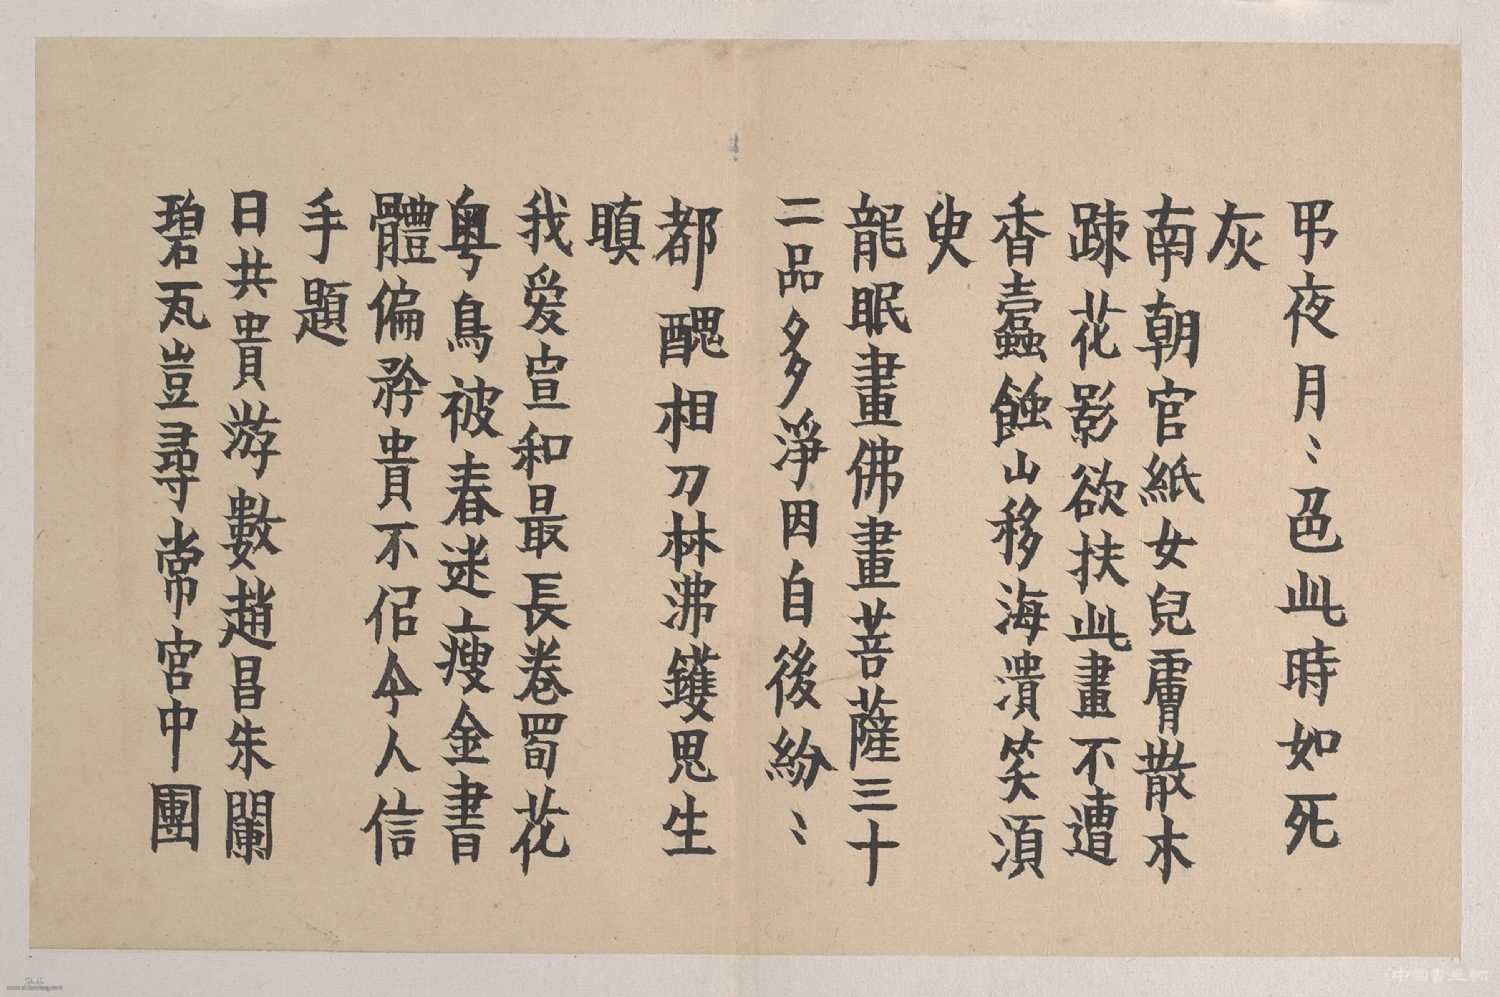 弔夜月〻色此時如死
灰
南朝官紙女兒膚散木
疎花影欲扶此畫不遭
香蠹蝕山移海潰笑須
臾
龍眠畫佛畫菩薩三十
二品多淨因自後紛〻
都醜相刀林沸鑊思生
瞋
我爱宣和最長卷蜀花
粤鳥被春迷瘦金書
體偏矜貴不佀今人信
手題
日共貴游數趙昌朱闌
碧瓦豈尋常宮中團
中国書画網